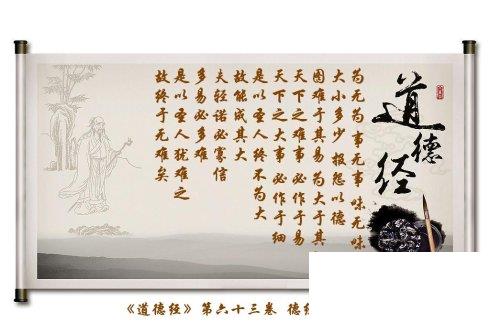 道德经
为无为 事无事 味无味
大小多少 报怨以德
图难于其易 为大于其
天下之难事 必作于易
天下之大事 必作于细
是以圣人终不为大
故能成其大
夫轻诺必寡信
多易必多难
是以圣人犹难之
故终于无难矣
《道德经》第六十三卷 德经